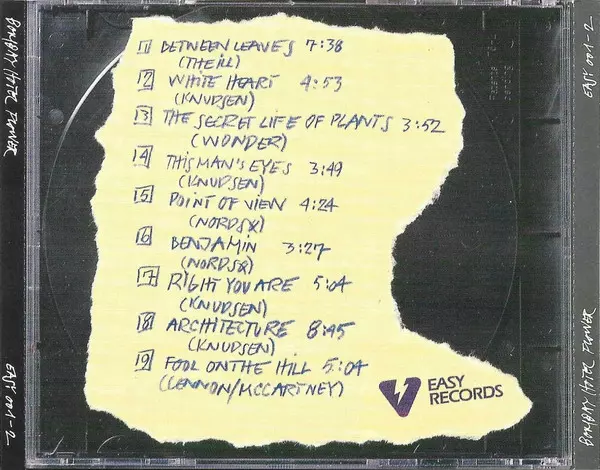 1 BETWEEN LEAVES 7:38
(THEILL)
2 WHITE HEART 4:53
(KNUDSEN)
3 THE SECRET LIFE OF PLANTS 3:52
(WONDER)
4 THIS MAN'S EYES 3:49
(KNUDSEN)
5 POINT OF VIEW 4:24
(NORDSØ)
6 BENJAMIN 3:27
(NORDSØ)
7 RIGHT YOU ARE 5:04
(KNUDSEN)
8 ARCHITECTURE 8:45
(KNUDSEN)
9 FOOL ON THE HILL 5:04
(LENNON/MCCARTNEY)
EASY
RECORDS
BOMBAY HOTEL FLOWER
EASY 001-2
EASY 001-2
BOMBAY HOTEL FLOWER